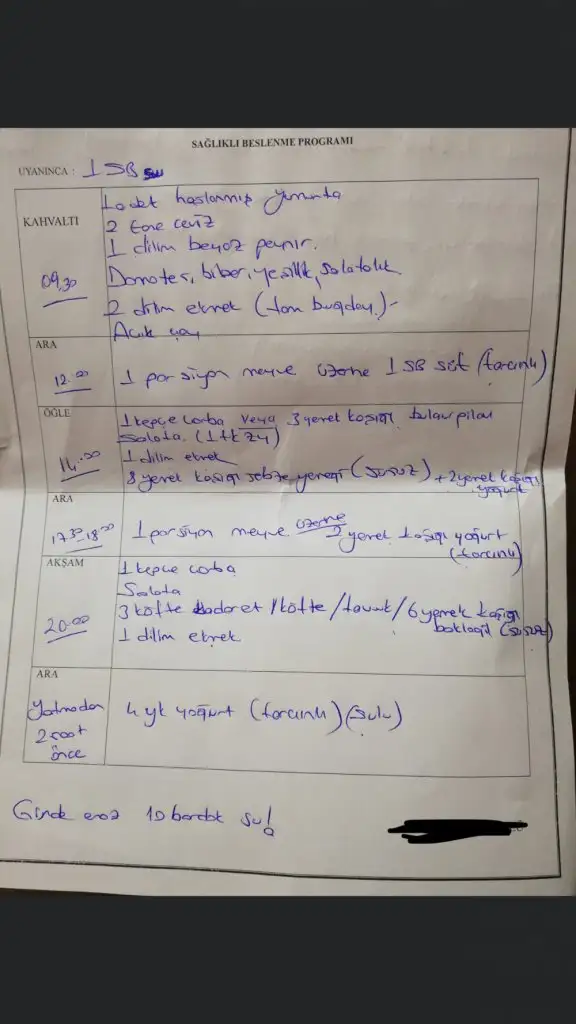 SAĞLIKLI BESLENME PROGRAMI
UYANINCA : 1 SB su
KAHVALTI
09.30
1 adet haşlanmış yumurta
2 tane ceviz
1 dilim beyaz peynir.
Domates, biber, yeşillik, salatalık
2 dilim ekmek (tam buğday)
Açık çay
ARA
12.00
1 porsiyon meyve üzerine 1 SB süt (tarçınlı)
ÖĞLE
14.00
1 kepçe çorba veya 3 yemek kaşığı bulgur pilavı
Salata (1 tk zy)
1 dilim ekmek
8 yemek kaşığı sebze yemeği (susuz) + 2 yemek kaşığı
yoğurt
ARA
17.30-18.00
1 porsiyon meyve üzerine 2 yemek kaşığı yoğurt
(tarçınlı)
AKŞAM
20.00
1 kepçe çorba
Salata
3 köfte kadar et / köfte / tavuk / 6 yemek kaşığı
baklagil (susuz)
1 dilim ekmek
ARA
Yatmadan
2 saat
önce
4 yk yoğurt (tarçınlı) (sulu)
Günde en az 10 bardak su!